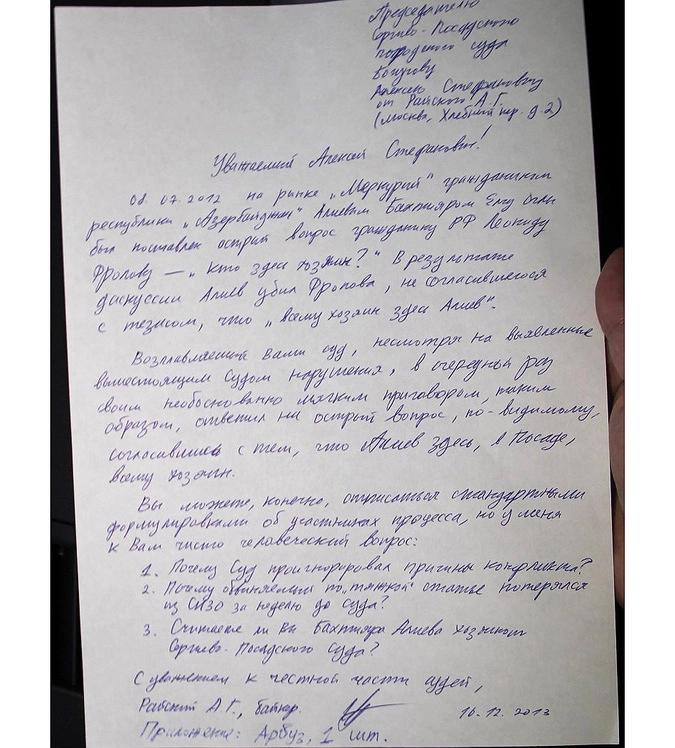 Председателю
Сергиево-Посадского
городского суда
Алексею Стефановичу
от Райского А.Г.
(Москва, Хлебный пер. д. 2)
Уважаемый Алексей Стефанович!
08.07.2012 на рынке „Меркурий" гражданином
республики „Азербайджан" Алиевым Бахтияром Ему оглы
был поставлен острый вопрос гражданину РФ Леониду
Фролову — „Кто здесь хозяин?" В результате
дискуссии Алиев убил Фролова, не согласившегося
с тезисом, что „всему хозяин здесь Алиев".
Возглавляемый Вами суд, несмотря на выявленные
вышестоящим судом нарушения, в очередной раз
своим необоснованно мягким приговором, таким
образом, ответил на острый вопрос, по-видимому,
согласившись с тем, что Алиев здесь, в Посаде,
всему хозяин.
Вы можете, конечно, отписаться стандартными
формулировками об участниках процесса, но у меня
к Вам чисто человеческий вопрос:
1. Почему Суд проигнорировал причины конфликта?
2. Почему обвиняемый по „тяжкой" статье потерялся
из СИЗО за неделю до суда?
3. Считаете ли Вы Бахтияра Алиева хозяином
Сергиево-Посадского суда?
С уважением к честной части судей,
Райский А.Г., байкер.
16.12.2013
Приложение: Арбуз, 1 шт.